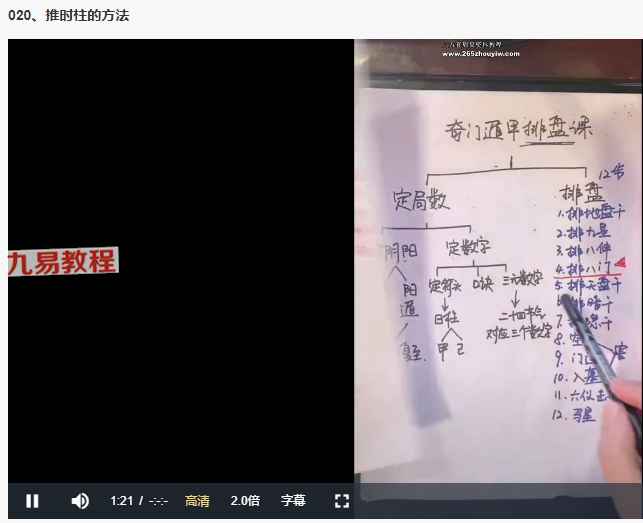 020、推时柱的方法
www.265zhouyiw.com
奇门遁甲排盘课
12步
定局数
排盘
1.排地盘干
2.排九星
3.排八神
4.排八门
5.排天盘干
排暗干
7.
8.空
9.门迫
10.入墓
11.六仪击
12.马星
阴阳
定数字
阳遁
定符头
口诀
三元数字
日柱
二十四节气
对应三个数字
甲己
九易教程
1:21 / -:-:-
高清
2.0倍
字幕